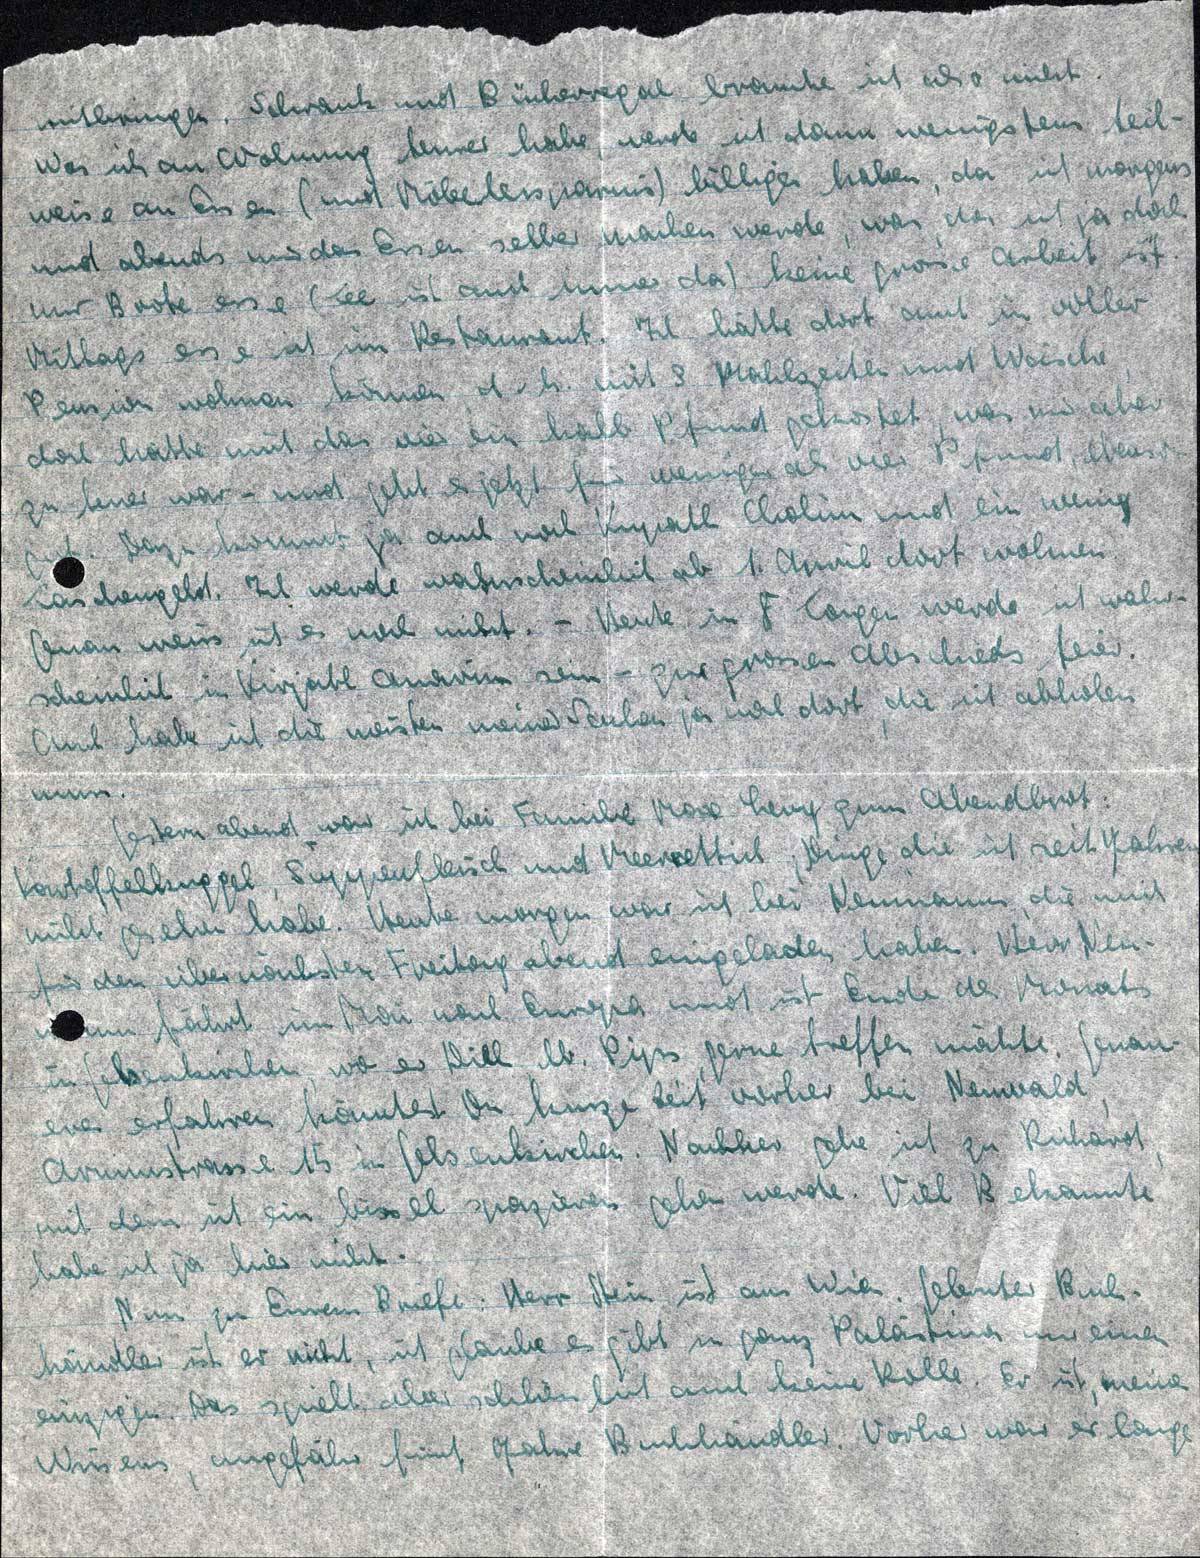 mitbringen. Schrank und Bücherregal brauche ich also nicht.
Was ich an Wohnung teurer habe werde ich dann wenigstens teil-
weise an Essen (und Möbelersparnis) billiger haben, da ich morgens
und abends mir das Essen selber machen werde, was, da ich ja doch
nur Brote esse (Tee ist auch immer da) keine grosse Arbeit ist.
Mittags esse ich im Restaurant. Ich hätte dort auch in voller
Pension wohnen können, d.h. mit 3 Mahlzeiten und Wäsche,
doch hätte mich das vier ein halb Pfund gekostet, was mir aber
zu teuer war – und geht es jetzt für weniger als vier Pfund, ebenso
gut. Dazu kommt ja auch noch Kupath Cholim und ein wenig
Taschengeld. Ich werde wahrscheinlich ab 1. April dort wohnen.
Genau weiss ich es noch nicht. – Heute in 8 Tagen werde ich wahr-
scheinlich in Kirjath Anavim sein – zur grossen Abschieds feier.
Auch habe ich die meisten meiner Sachen ja noch dort, die ich abholen
muss.
Gestern abend war ich bei Familie Max Levy zum Abendbrot:
Kartoffelkuggel, Suppenfleisch und Meerrettich, Dinge die ich seit Jahren
nicht gesehen habe. Heute morgen war ich bei Neumanns, die mich
für den übernächsten Freitag abend eingeladen haben. Herr Neu-
mann fährt im Mai nach Europa und ist Ende des Monats
in Gelsenkirchen, wo er Dich, lb. Pips, gerne treffen möchte. Genau-
eres erfahren könntest Du kurze Zeit vorher bei Neuwald,
Arminstrasse 15 in Gelsenkirchen. Nachher gehe ich zu Richard,
mit dem ich ein bissel spazieren gehen werde. Viel Bekannte
habe ich ja hier nicht.
Nun zu Eurem Briefe: Herr Stein ist aus Wien. Gelernter Buch-
händler ist er nicht, ich glaube es gibt in ganz Palästina nur einen
einzigen. Das spielt aber schliesslich auch keine Rolle. Er ist, meines
Wissens, ungefähr fünf Jahre Buchhändler. Vorher war er lange